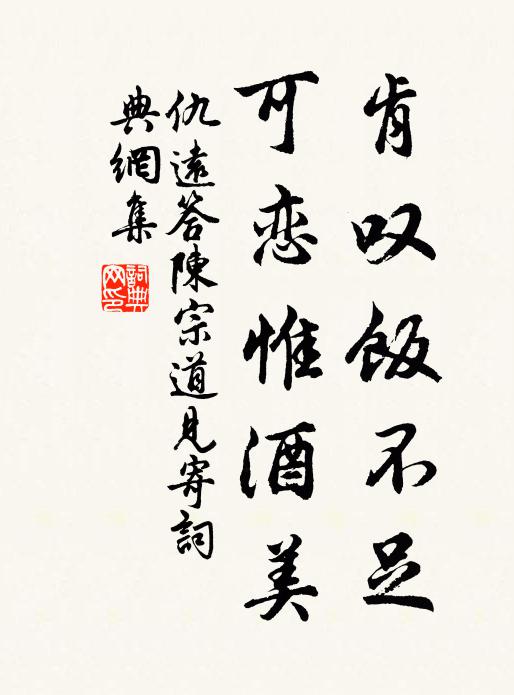 肯叹飯不足
可恋惟酒美
仇遠答陳宗道見寄詞
典網集
詞典
网印